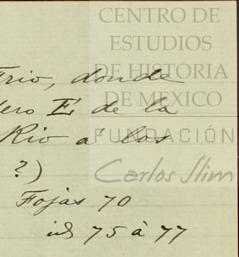 CENTRO DE
ESTUDIOS
DE HISTORIA
DE MEXICO
FUNDACIÓN
Carlos Slim
Frio, donde
dero E de la
Rio a' los
?)
Fojas 70
id 75 à 77